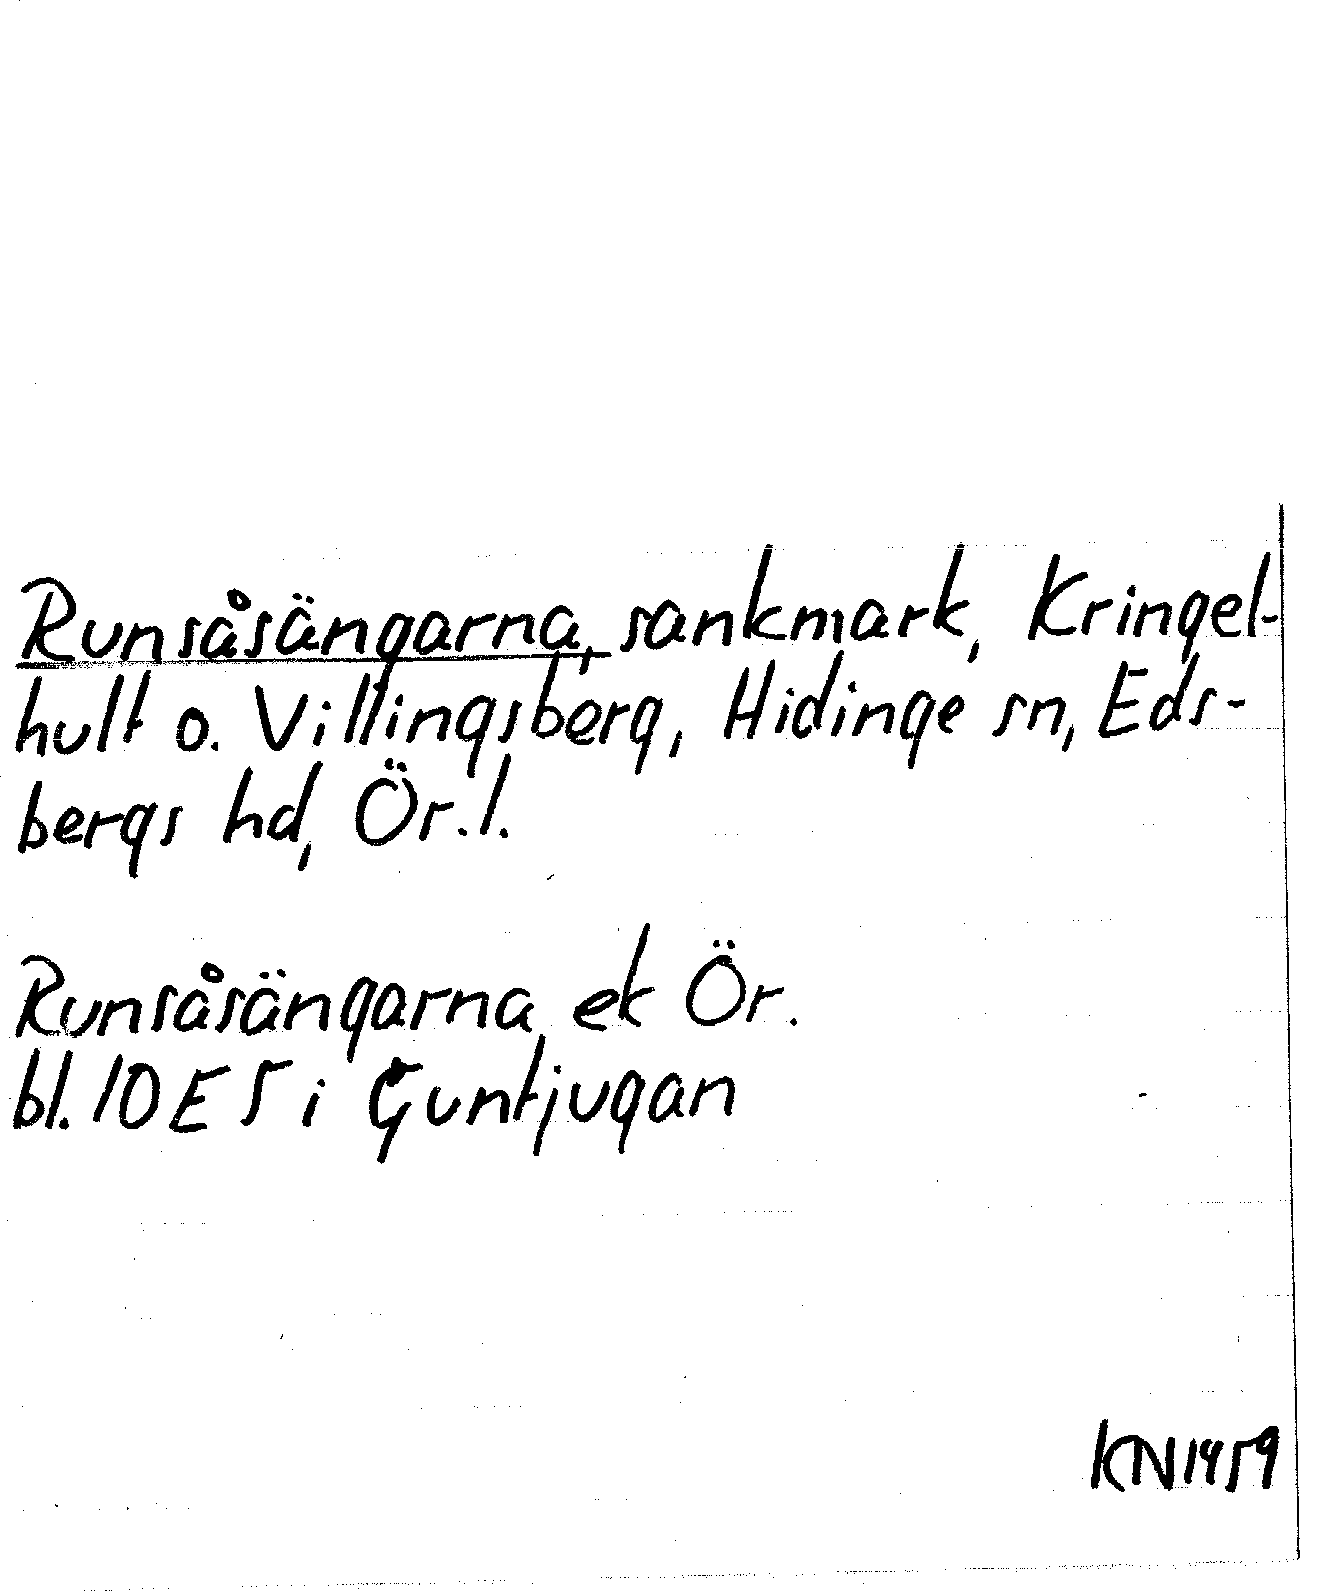 Runsåsängarna, sankmark, Kringel-
hult o. Villingsberg, Hidinge sn, Eds-
bergs hd, Ör. l.
Runsåsängarna ek Ör.
bl. 10E5 i Guntjugan
KN1959